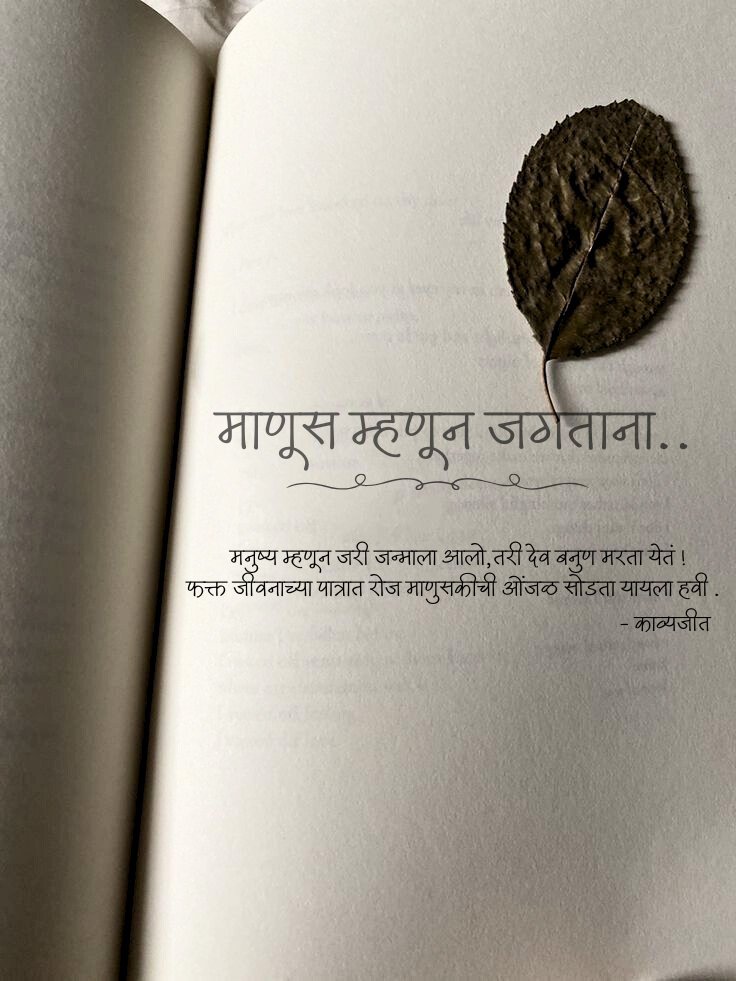 माणूस म्हणून जगताना..
मनुष्य म्हणून जरी जन्माला आलो,तरी देव बनुण मरता येतं !
फक्त जीवनाच्या पात्रात रोज माणुसकीची ओंजळ सोडता यायला हवी .
- काव्यजीत